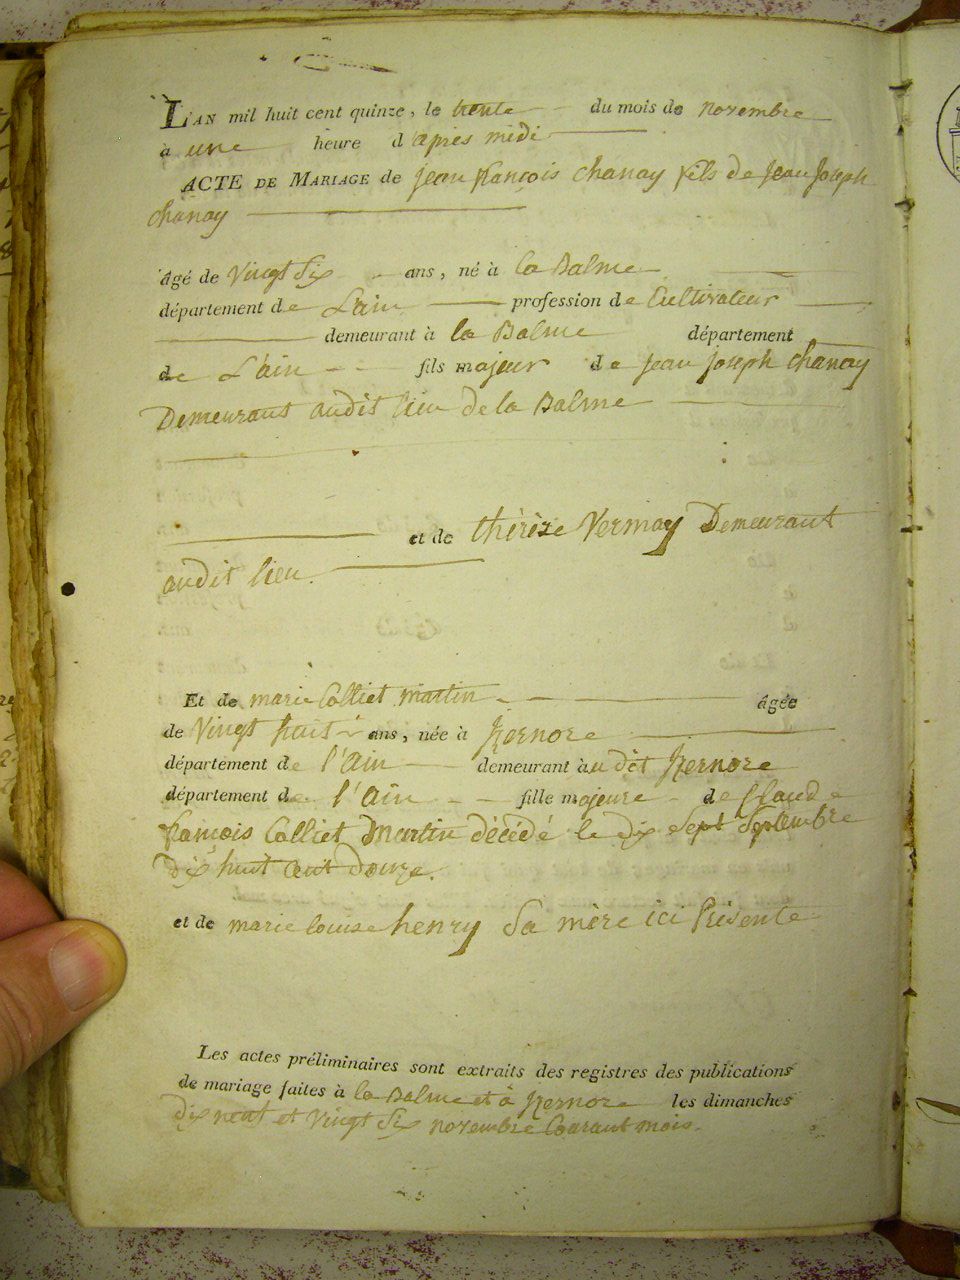 L'AN mil huit cent quinze, le trente du mois de novembre
à une heure d'après midi
ACTE DE MARIAGE de jean françois chanay fils de Jean Joseph
chanay
âgé de vingt six ans, né à la Balme
département de L'ain profession de Cultivateur
demeurant à la Balme département
de L'ain fils majeur de jean joseph chanay
Demeurant audit lieu de la Balme
et de thérèse Vermay Demeurant
audit lieu.
Et de marie Colliet martin âgée
de Vingt huit ans, née à
département de l'ain demeurant audit
département de l'ain fille majeure de Claude
françois Colliet Martin décédé le dix sept Septembre
Dix huit cent douze.
et de marie louise henry Sa mère ici Présente
Les actes préliminaires sont extraits des registres des publications
de mariage faites à la Balme et à les dimanches
Dix neuf et Vingt Six novembre Courant mois.